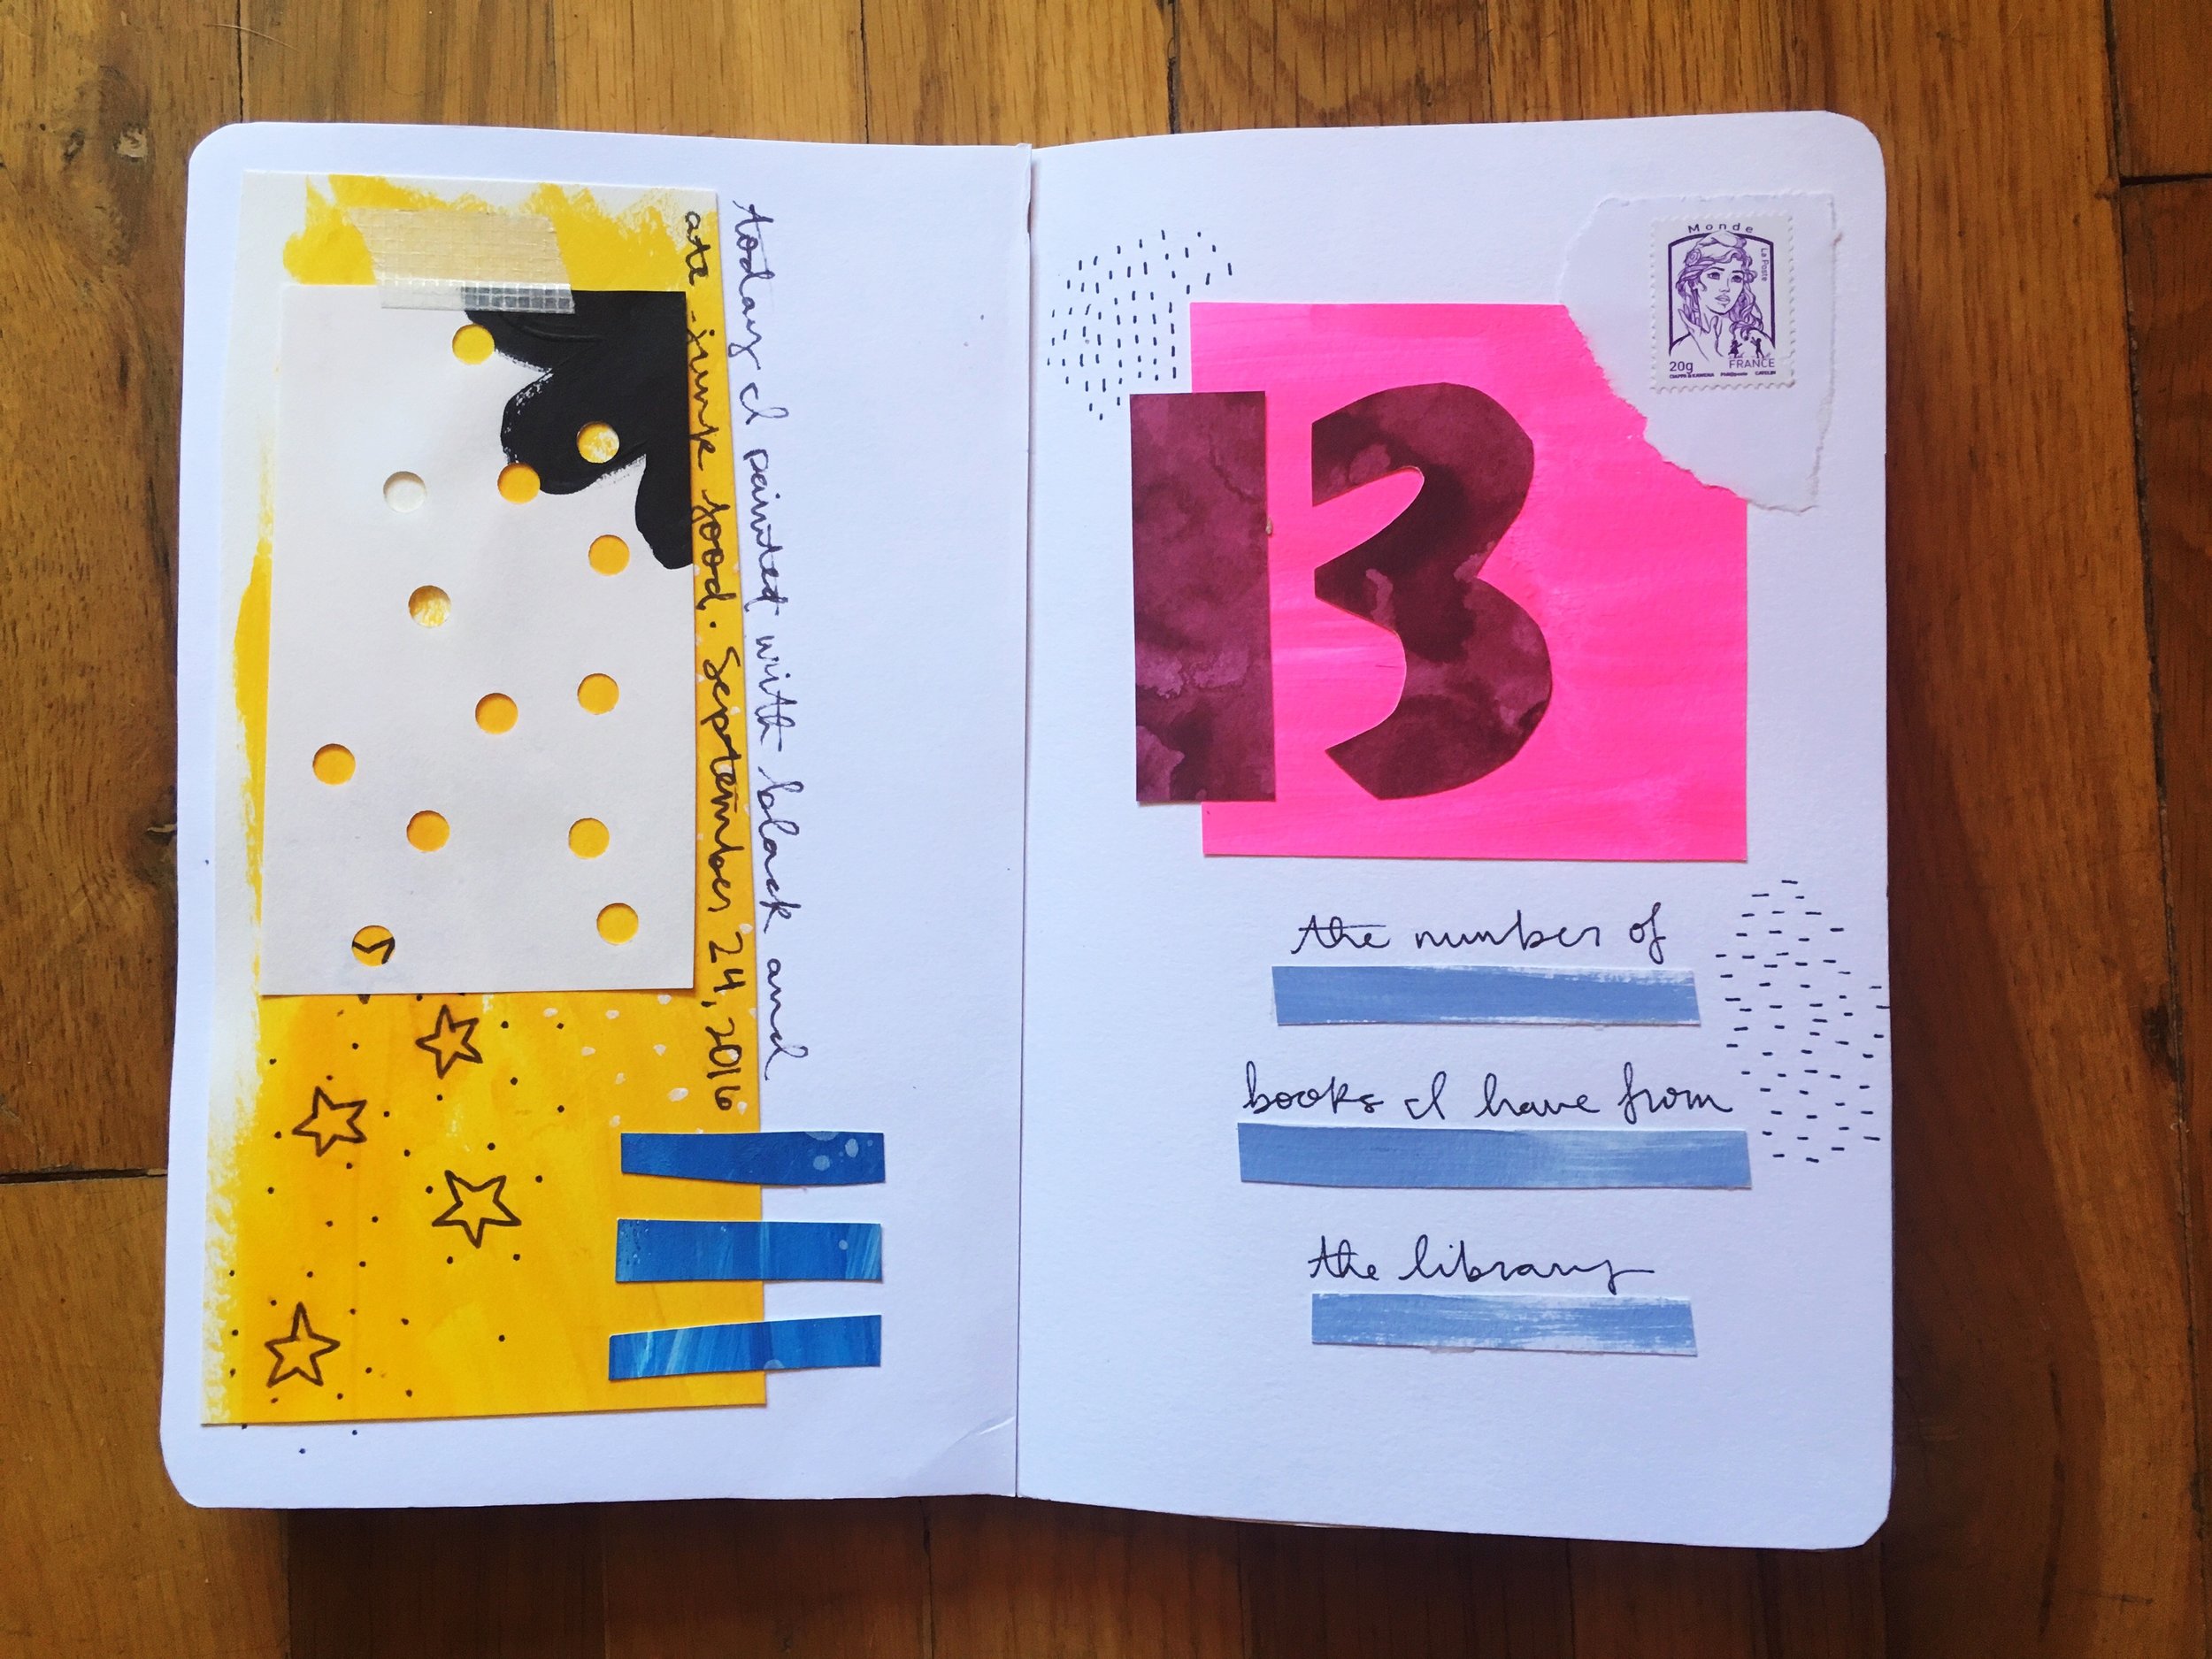 today I painted with black and
ate junk food. September 24, 2016
Monde
La Poste
20g
FRANCE
13
the number of
books I have from
the library